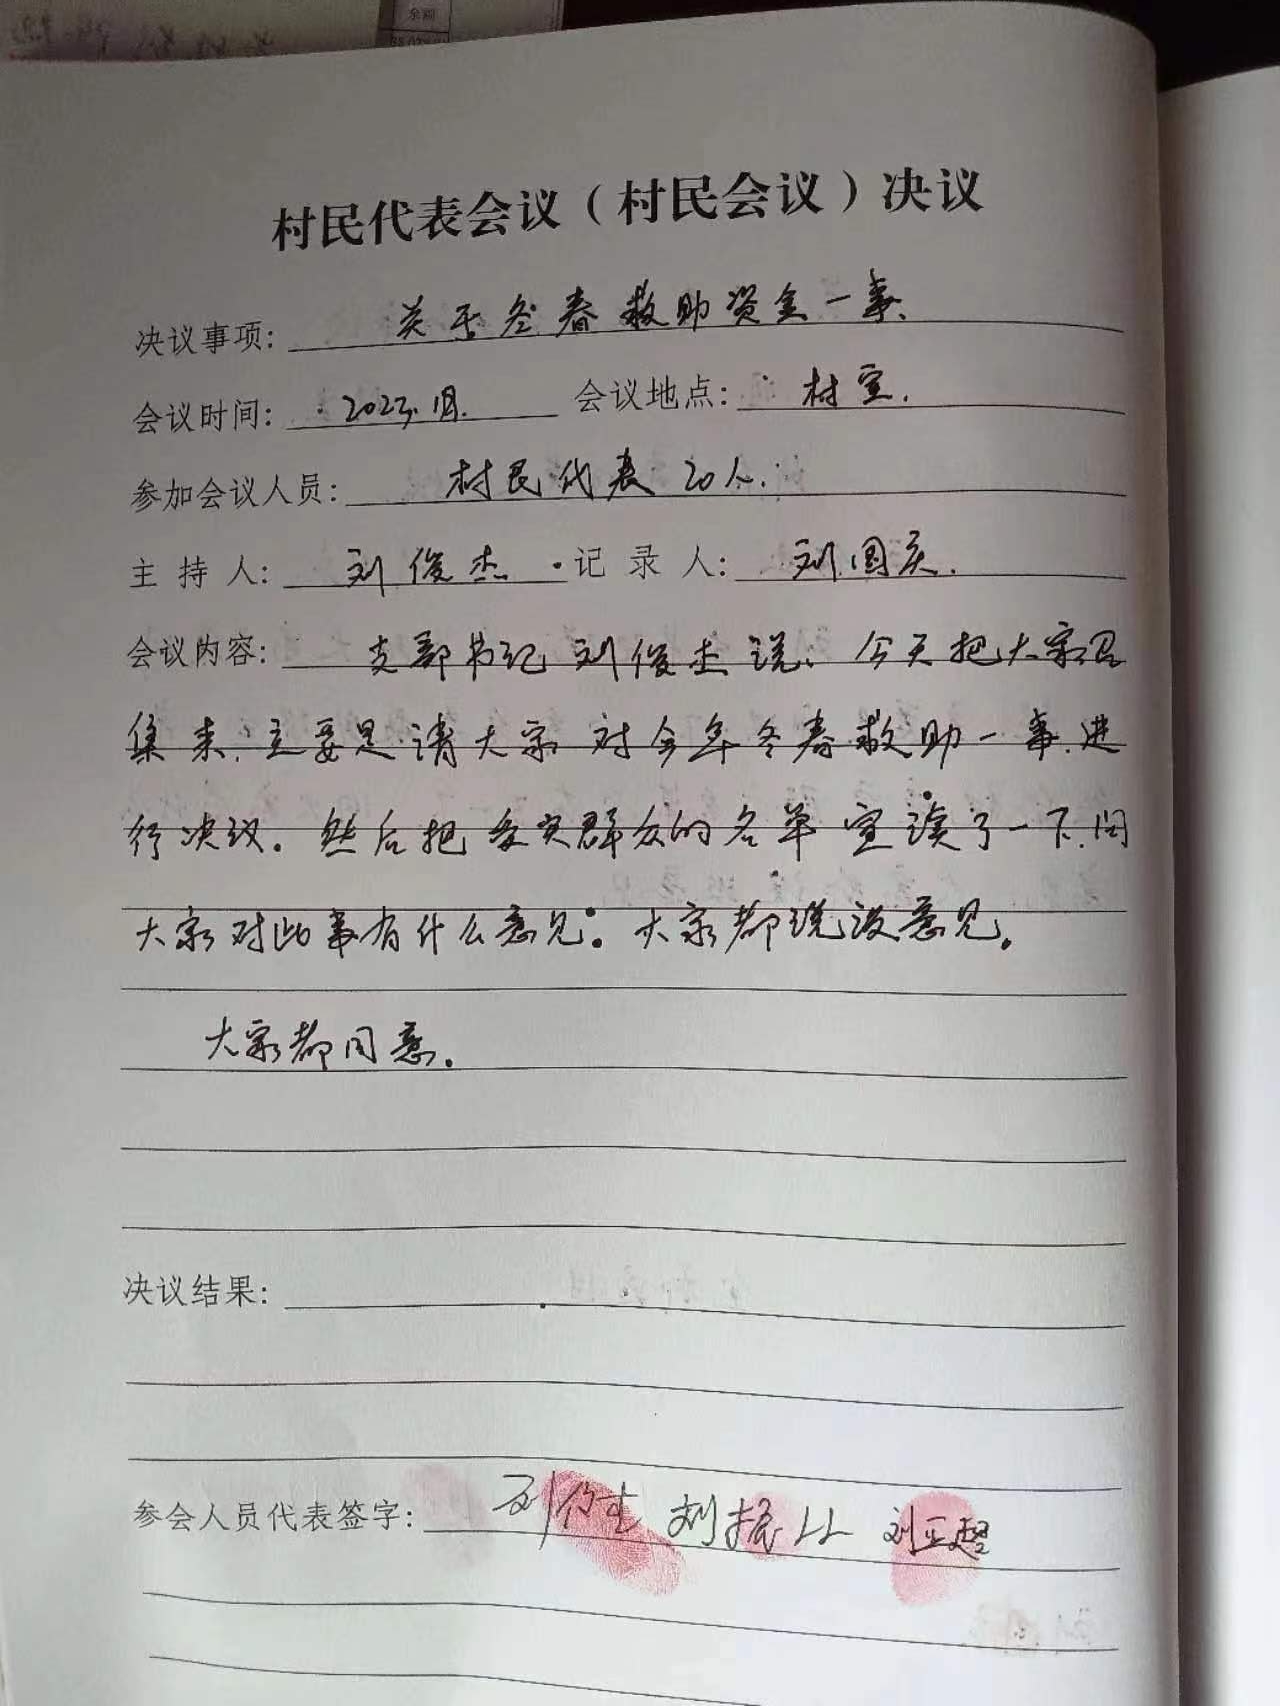 余额
村民代表会议（村民会议）决议
决议事项: 关于冬春救助资金一事.
会议时间: 2023.1月. 会议地点: 村室.
参加会议人员: 村民代表20人.
主持人: 刘俊杰. 记录人: 刘国庆.
会议内容: 支部书记刘俊杰说: 今天把大家召
集来,主要是请大家对今年冬春救助一事,进
行决议。然后把受灾群众的名单宣读了一下,问
大家对此事有什么意见。大家都说没意见。
大家都同意。
决议结果:
参会人员代表签字: 刘 刘振山 刘正超